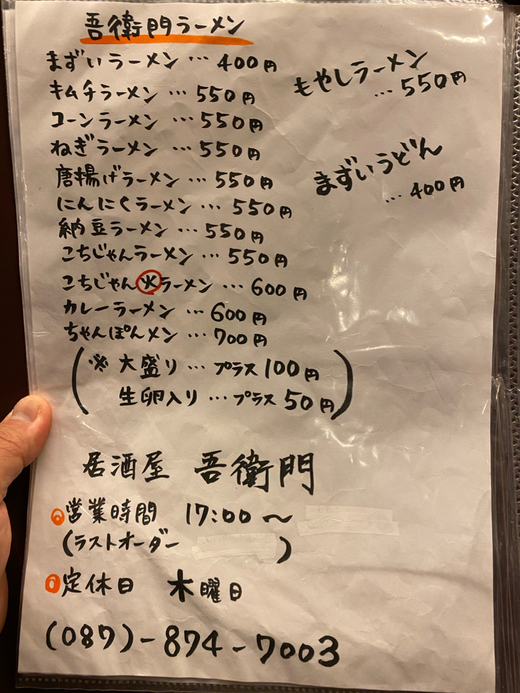 吾衛門ラーメン
まずいラーメン … 400円
キムチラーメン … 550円
コーンラーメン … 550円
ねぎラーメン … 550円
唐揚げラーメン … 550円
にんにくラーメン … 550円
納豆ラーメン … 550円
こちじゃんラーメン … 550円
こちじゃん火ラーメン … 600円
カレーラーメン … 600円
ちゃんぽんメン … 700円
(※ 大盛り … プラス 100円
生卵入り … プラス 50円)
もやしラーメン
… 550円
まずいうどん
… 400円
居酒屋 吾衛門
営業時間 17:00〜
(ラストオーダー )
定休日 木曜日
(087)-874-7003